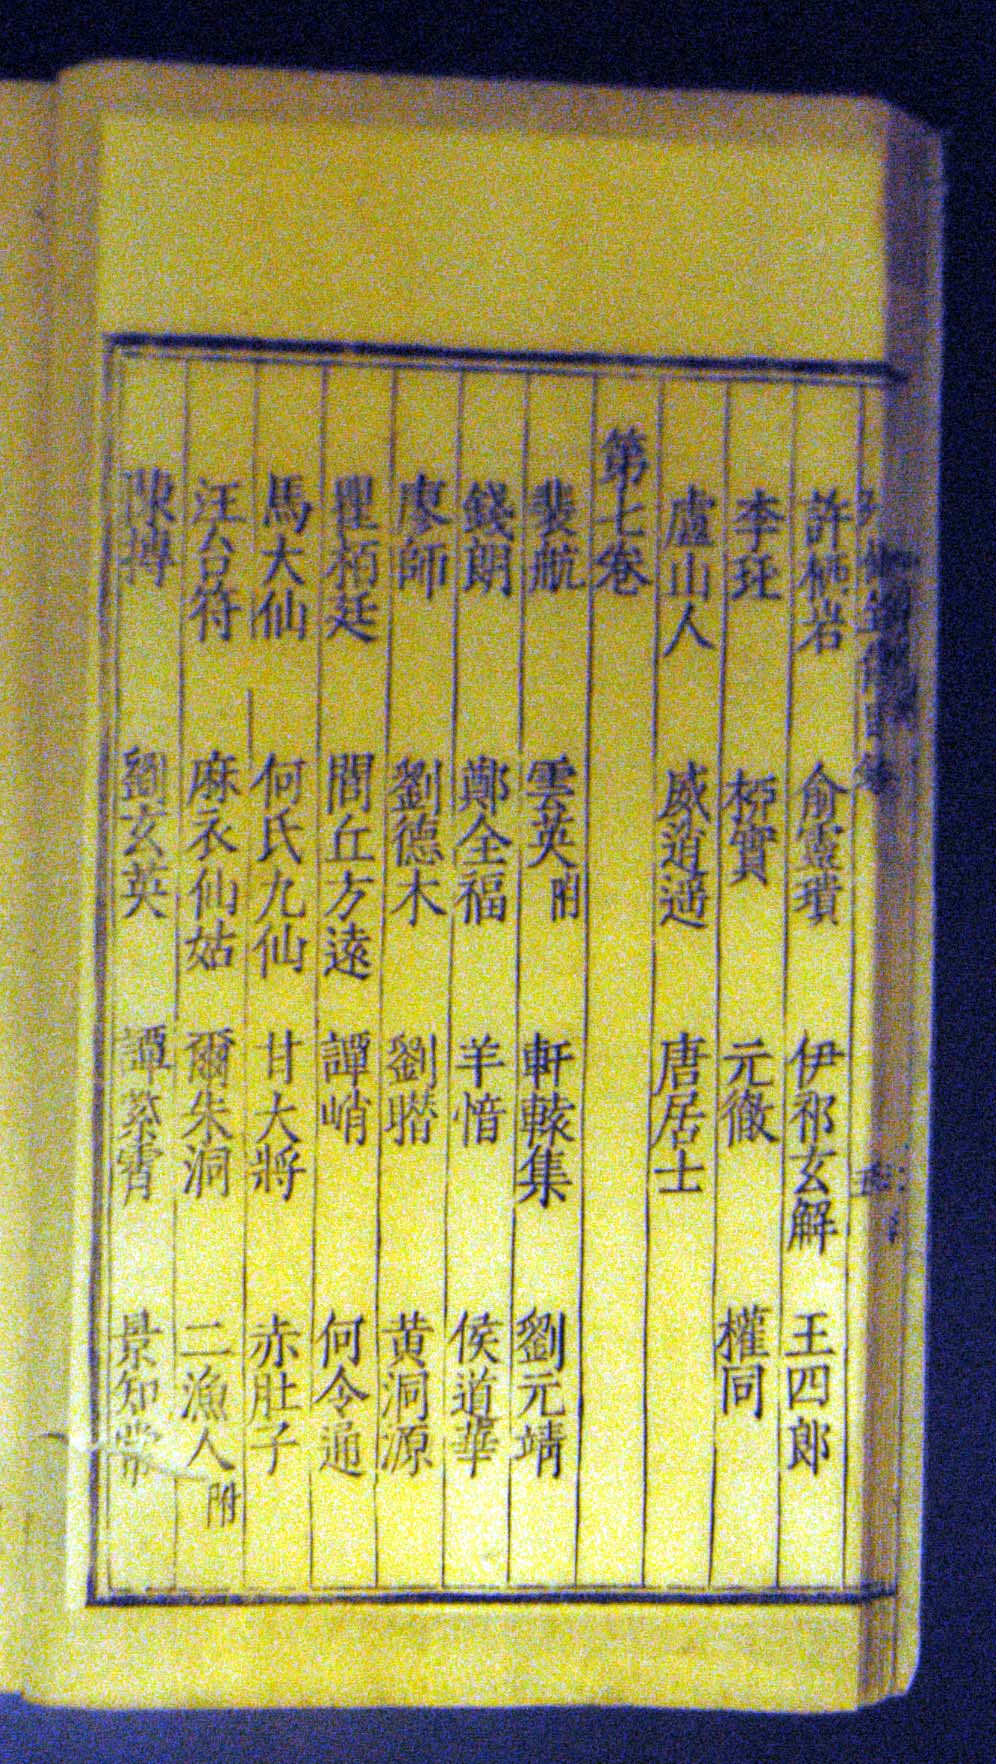 許栖岩 俞靈璝 伊祁玄解 王四郎
李珏 柳實 元徹 權同
盧山人 威逍遥 唐居士
第七卷
裴航 雲英附 軒轅集 劉元靖
錢朗 鄭全福 羊愔 侯道華
廖師 劉德本 劉𣋌 黃洞源
瞿栢廷 閭丘方遠 譚峭 何令通
馬大仙 何氏九仙 甘大將 赤肚子
汪台符 麻衣仙姑 爾朱洞 二漁人附
陳摶 劉玄英 譚紫霄 景知常